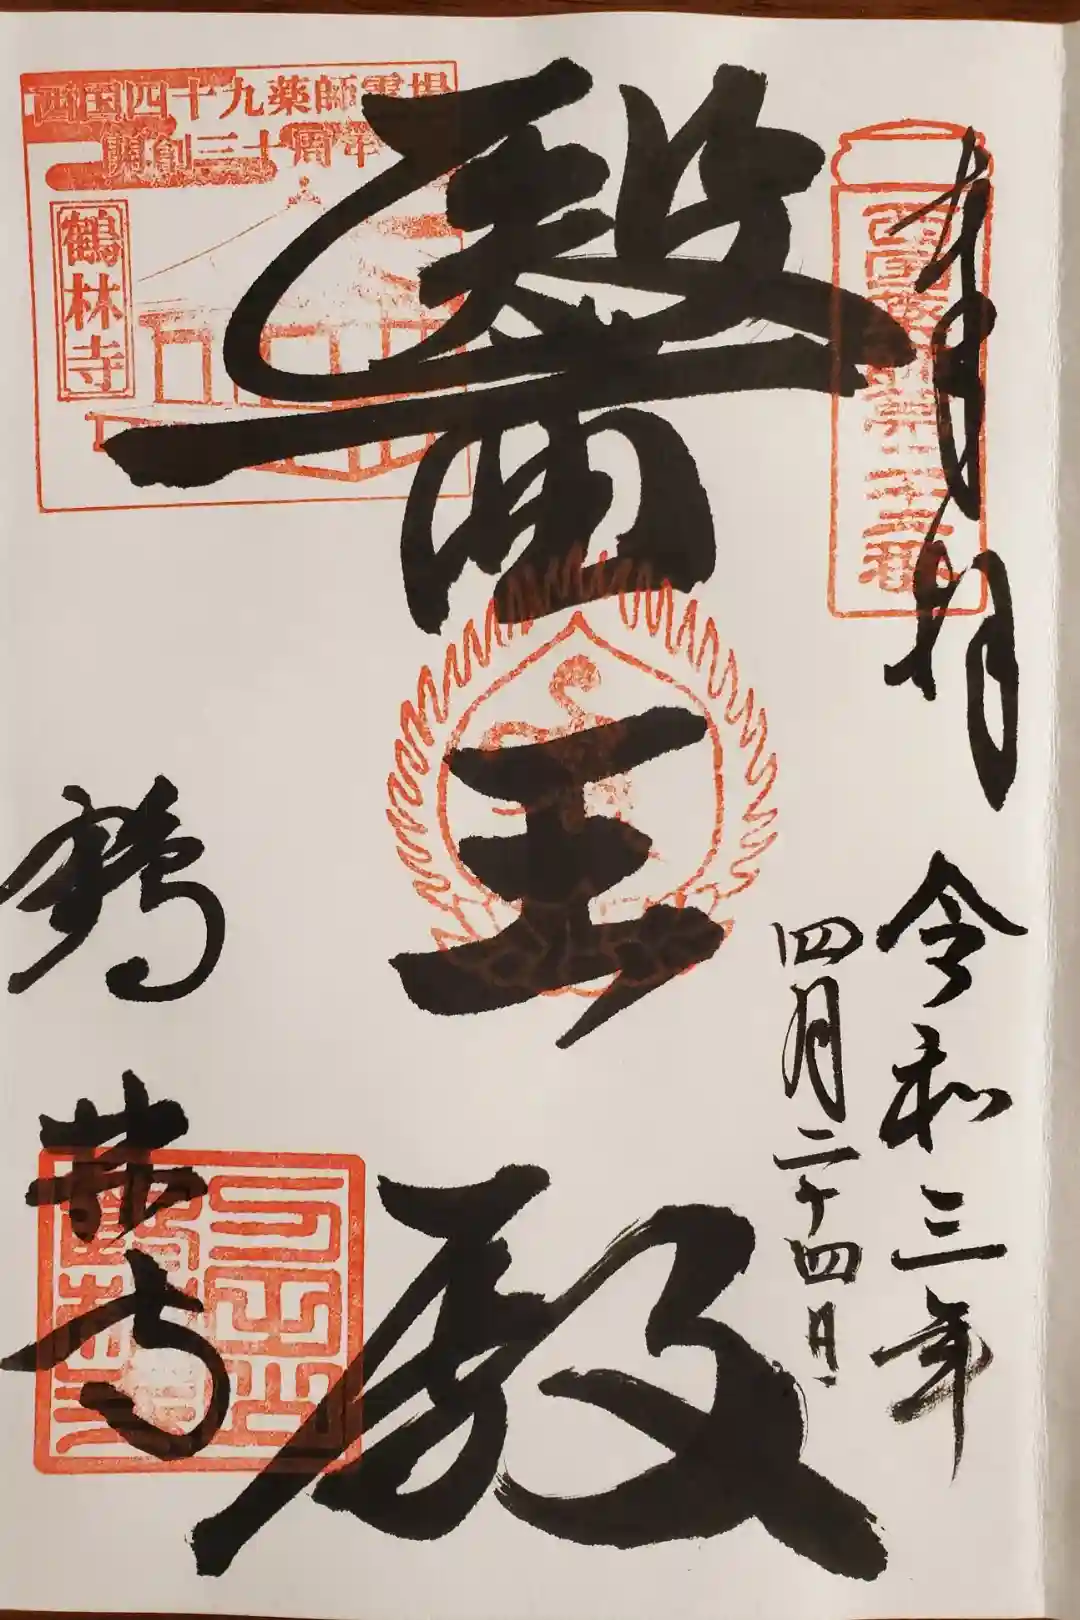 奉拝
令和三年
四月二十四日
西国薬師第二十二番
醫王殿
西国四十九薬師霊場
開創三十周年
鶴林寺
鶴林寺